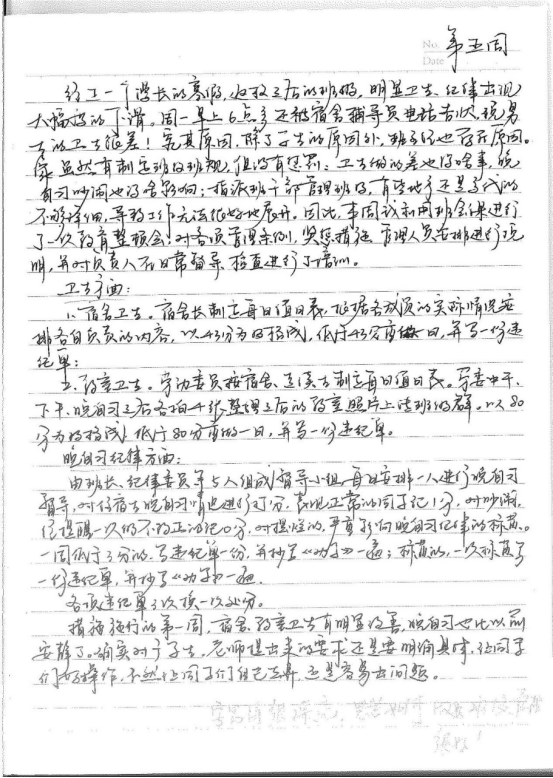 No.
Date
第五周
经过一个漫长的寒假,收假之后的班级,明显卫生、纪律出现
大幅度的下滑。周一早上6点多还被宿舍辅导员电话告状,说男
生的卫生很差!究其原因,除了学生的原因外,班主任也存在原因。
虽然有制定班级班规,但没有惩罚:卫生做的差也没啥事,晚
自习吵闹也没啥影响;指派班干部管理班级,有些地方还是交代的
不够详细,导致工作无法很好地展开。因此,本周议利用班会课进行
了一次教育整顿会,对各项管理条例,奖惩措施,管理人员安排进行说
明,并对负责人员日常督导、检查进行了培训。
卫生方面:
1、宿舍卫生。宿舍长制定每日值日表,依据各成员的实际情况安
排各自负责的内容,以43分为及格线,低于43分重做一日,并写一份违
纪单;
2、教室卫生。劳动委员按宿舍、走读生制定每日值日表。劳委中午、
下午、晚自习之后各拍4张整理之后的教室照片上传班级群。以80
分为及格线,低于80分重做一日,并写一份违纪单。
晚自习纪律方面:
由班长、纪律委员等5人组成督导小组,每日安排一人进行晚自习
督导,对住宿生晚自习情况进行打分,表现正常的同学记1分,对吵闹,
经提醒一次仍不改正的记0分,对提醒的,严重影响晚自习纪律的
一周低于3分的,写违纪单一份,并抄写《劝学》一遍;一次
一份违纪单,并抄写《劝学》一遍。
各项违纪单3次换一次处分。
措施施行的第一周,宿舍、教室卫生有明显改善,晚自习也比以前
安静了。确实对于学生,老师提出来的要求还是要明确具体,让同学
们好操作,不然让同学们自己去弄,还是容易出问题。